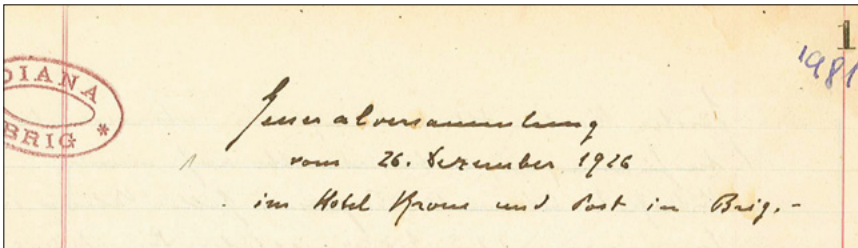 1
1981
DIANA
BRIG *
Generalversammlung
vom 26. Dezember 1926
im Hotel Krone und Post in Brig.-